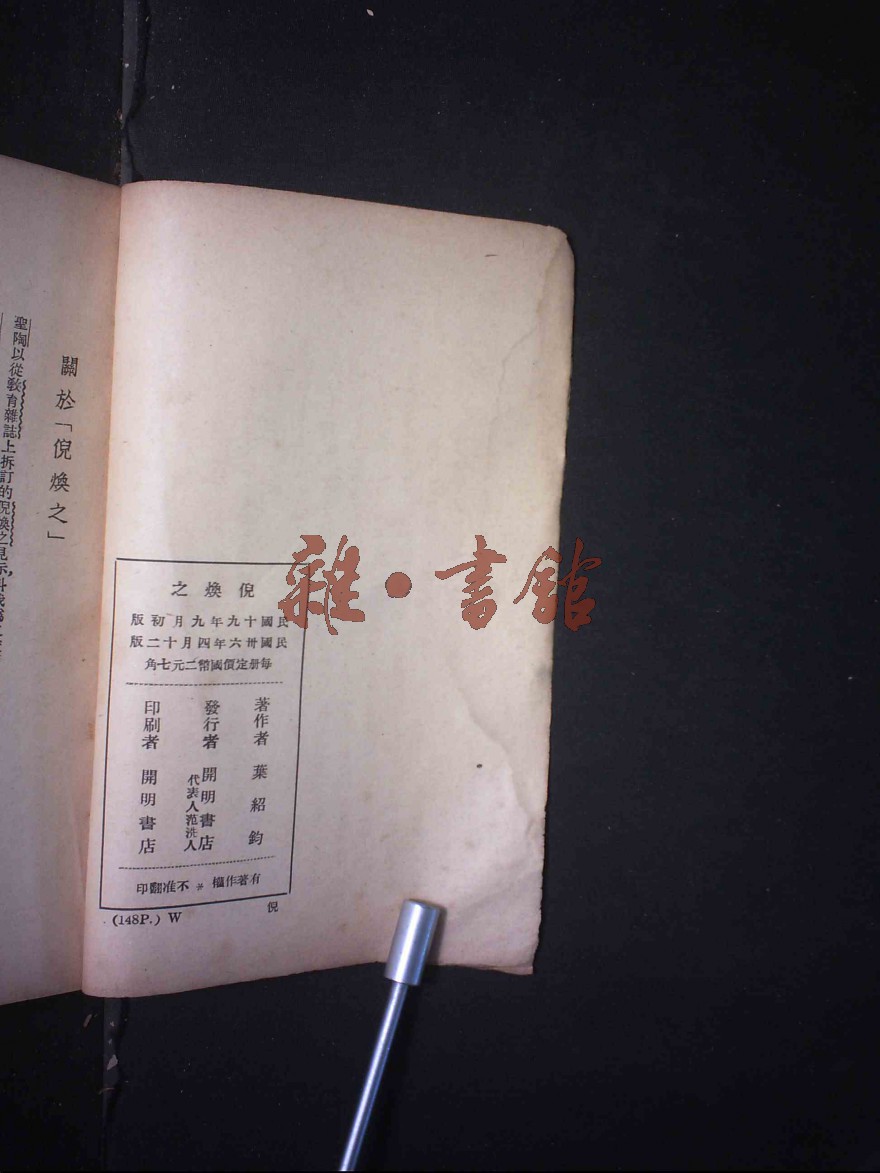 倪煥之
民國十九年九月初版
民國卅六年四月十二版
每册定價國幣二元七角
著作者 葉紹鈞
發行者 開明書店
代表人范洗人
印刷者 開明書店
有著作權 * 不准翻印
倪
(148P.) W
關於「倪煥之」
聖陶以從教育雜誌上拆訂的倪煥之見示,
雜•書館